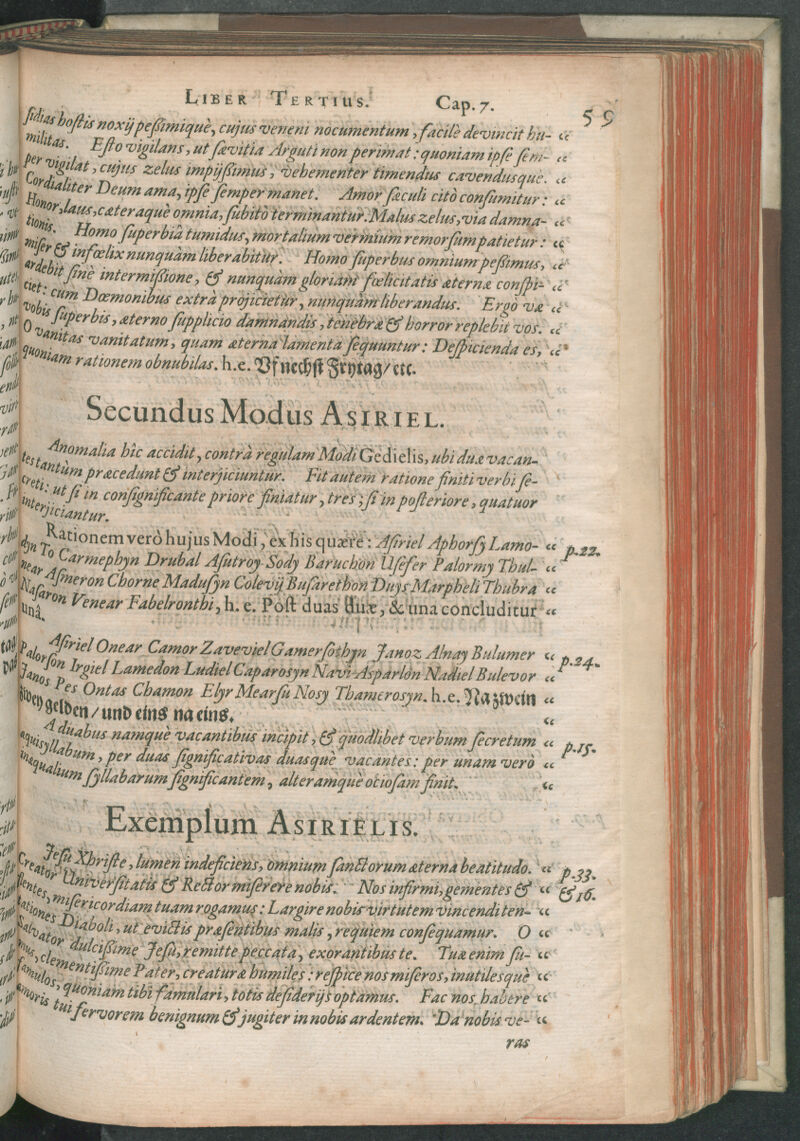 LIBER TERTIUS. Cap. 7. 59
sidias hostis noxij peßimiquè, cujus veneni nocumentum, facilè devincit hu- “
militas. Esto vigilans, ut sævitia Arguti non perimat: quoniam ipse sem- “
per vigilat, cujus zelus impijßimus, vehementer timendus cavendusquè. “
Cordialiter Deum ama, ipse semper manet. Amor sæculi citò consumitur: “
Honor, laus, cæteraquè omnia, subitò terminantur. Malus zelus, via damna- “
tionis. Homo superbiâ tumidus, mortalium vermium remorsum patietur: “
miser & infœlix nunquàm liberabitur. Homo superbus omnium peßimus, “
ardebit sinè intermißione, & nunquàm gloriam fœlicitatis æternæ conspi- “
ciet: cum Dæmonibus extrà projicietur, nunquàm liberandus. Ergò væ “
vobis superbis, æterno supplicio damnandis, tenebræ & horror replebit vos. “
O vanitas vanitatum, quam æterna lamenta sequuntur: Despicienda es, “
quoniam rationem obnubilas. h.e. Uf nechst Frytag/ etc.
Secundus Modus ASIRIEL.
Anomalia hîc accidit, contrà regulam Modi Gedielis, ubi duæ vacan-
tes tantùm præcedunt & interjiciuntur. Fit autem ratione finiti verbi se-
creti: ut si in consignificante priore finiatur, tres; si in posteriore, quatuor
interjiciantur.
Rationem verò hujus Modi, ex his quære: Asiriel Aphorsy Lamo- “ p.22.
dyn To Carmephyn Drubal Asutroy Sody Baruchon Usefer Palormy Thul- “
near Asmeron Chorne Madusyn Colevij Busarethon Duys Marpheli Thubra “
Nasaron Venear Fabelronthi, h. e. Post duas duæ, & una concluditur “
unâ.
Asiriel Onear Camor Zaveviel Gamersothyn Janoz Alnay Bulumer “ p.24.
Palorson Irgiel Lamedon Ludiel Caparosyn Navi Asparlon Nadiel Bulevor “
Janos Pes Ontas Chamon Elyr Mearsu Nosy Thamerosyn. h.e. Na zwein “
zwey gelden / und eins na eins. “
A duabus namquè vacantibus incipit, & quodlibet verbum secretum “ p.15.
æquisyllabum, per duas significativas duasquè vacantes: per unam verò “
inæqualium syllabarum significantem, alteramquè otiosam finit. “
Exemplum ASIRIELIS.
Jesu Xhriste, lumen indeficiens, omnium sanctorum æterna beatitudo. “ p.33.
Creator Universitatis & Rector miserere nobis. Nos infirmi, gementes & “ &16.
flentes, misericordiam tuam rogamus: Largire nobis virtutem vincendi ten- “
tationes Diaboli, ut evictis præsentibus malis, requiem consequamur. O “
Salvator dulcißime Jesu, remitte peccata, exorantibus te. Tuæ enim su- “
mus, clementißime Pater, creaturæ humiles: respice nos miseros, inutilesquè “
famulos, quoniam tibi famulari, totis desiderijs optamus. Fac nos habere “
amoris tui fervorem benignum & jugiter in nobis ardentem. Da nobis ve- “
ras